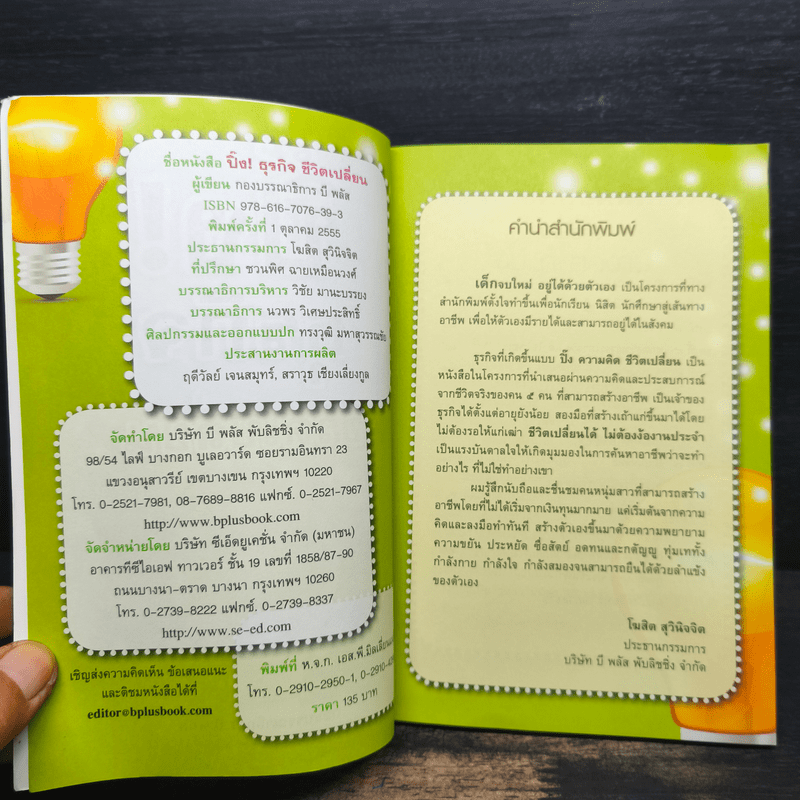 ชื่อหนังสือ ปิ๊ง! ธุรกิจ ชีวิตเปลี่ยน
ผู้เขียน กองบรรณาธิการ บี พลัส
ISBN 978-616-7076-39-3
พิมพ์ครั้งที่ 1 ตุลาคม 2555
ประธานกรรมการ โฆสิต สุวินิจจิต
ที่ปรึกษา ชวนพิศ ฉายเหมือนวงศ์
บรรณาธิการบริหาร วิชัย มานะบรรยง
บรรณาธิการ นวพร วิเศษประสิทธิ์
ศิลปกรรมและออกแบบปก ทรงวุฒิ มหาสุวรรณชัย
ประสานงานการผลิต
ฤดีวัลย์ เจนสมุทร์, สราวุธ เชียงเลี่ยงกูล
จัดทำโดย บริษัท บี พลัส พับลิชชิ่ง จำกัด
98/54 ไลฟ์ บางกอก บูเลอวาร์ด ซอยรามอินทรา 23
แขวงอนุสาวรีย์ เขตบางเขน กรุงเทพฯ 10220
โทร. 0-2521-7981, 08-7689-8816 แฟกซ์. 0-2521-7967
http://www.bplusbook.com
จัดจำหน่ายโดย บริษัท ซีเอ็ดยูเคชั่น จำกัด (มหาชน)
อาคารทีซีไอเอฟ ทาวเวอร์ ชั้น 19 เลขที่ 1858/87-90
ถนนบางนา-ตราด บางนา กรุงเทพฯ 10260
โทร. 0-2739-8222 แฟกซ์. 0-2739-8337
http://www.se-ed.com
พิมพ์ที่ ห.จ.ก. เอส.พี.
โทร. 0-2910-2950-1,
ราคา 135 บาท
เชิญส่งความคิดเห็น ข้อเสนอแนะ
และติชมหนังสือได้ที่
editor@bplusbook.com
คำนำสำนักพิมพ์
เด็กจบใหม่ อยู่ได้ด้วยตัวเอง เป็นโครงการที่ทาง
สำนักพิมพ์ตั้งใจทำขึ้นเพื่อนักเรียน นิสิต นักศึกษาสู่เส้นทาง
อาชีพ เพื่อให้ตัวเองมีรายได้และสามารถอยู่ได้ในสังคม
ธุรกิจที่เกิดขึ้นแบบ ปิ๊ง ความคิด ชีวิตเปลี่ยน เป็น
หนังสือในโครงการที่นำเสนอผ่านความคิดและประสบการณ์
จากชีวิตจริงของคน ๕ คน ที่สามารถสร้างอาชีพ เป็นเจ้าของ
ธุรกิจได้ตั้งแต่อายุยังน้อย สองมือที่สร้างเถ้าแก่ขึ้นมาได้โดย
ไม่ต้องรอให้แก่เฒ่า ชีวิตเปลี่ยนได้ ไม่ต้องง้องานประจำ
เป็นแรงบันดาลใจให้เกิดมุมมองในการค้นหาอาชีพว่าจะทำ
อย่างไร ที่ไม่ใช่ทำอย่างเขา
ผมรู้สึกนับถือและชื่นชมคนหนุ่มสาวที่สามารถสร้าง
อาชีพโดยที่ไม่ได้เริ่มจากเงินทุนมากมาย แค่เริ่มต้นจากความ
คิดและลงมือทำทันที สร้างตัวเองขึ้นมาด้วยความพยายาม
ความขยัน ประหยัด ซื่อสัตย์ อดทนและกตัญญู ทุ่มเททั้ง
กำลังกาย กำลังใจ กำลังสมองจนสามารถยืนได้ด้วยลำแข้ง
ของตัวเอง
โฆสิต สุวินิจจิต
ประธานกรรมการ
บริษัท บี พลัส พับลิชชิ่ง จำกัด